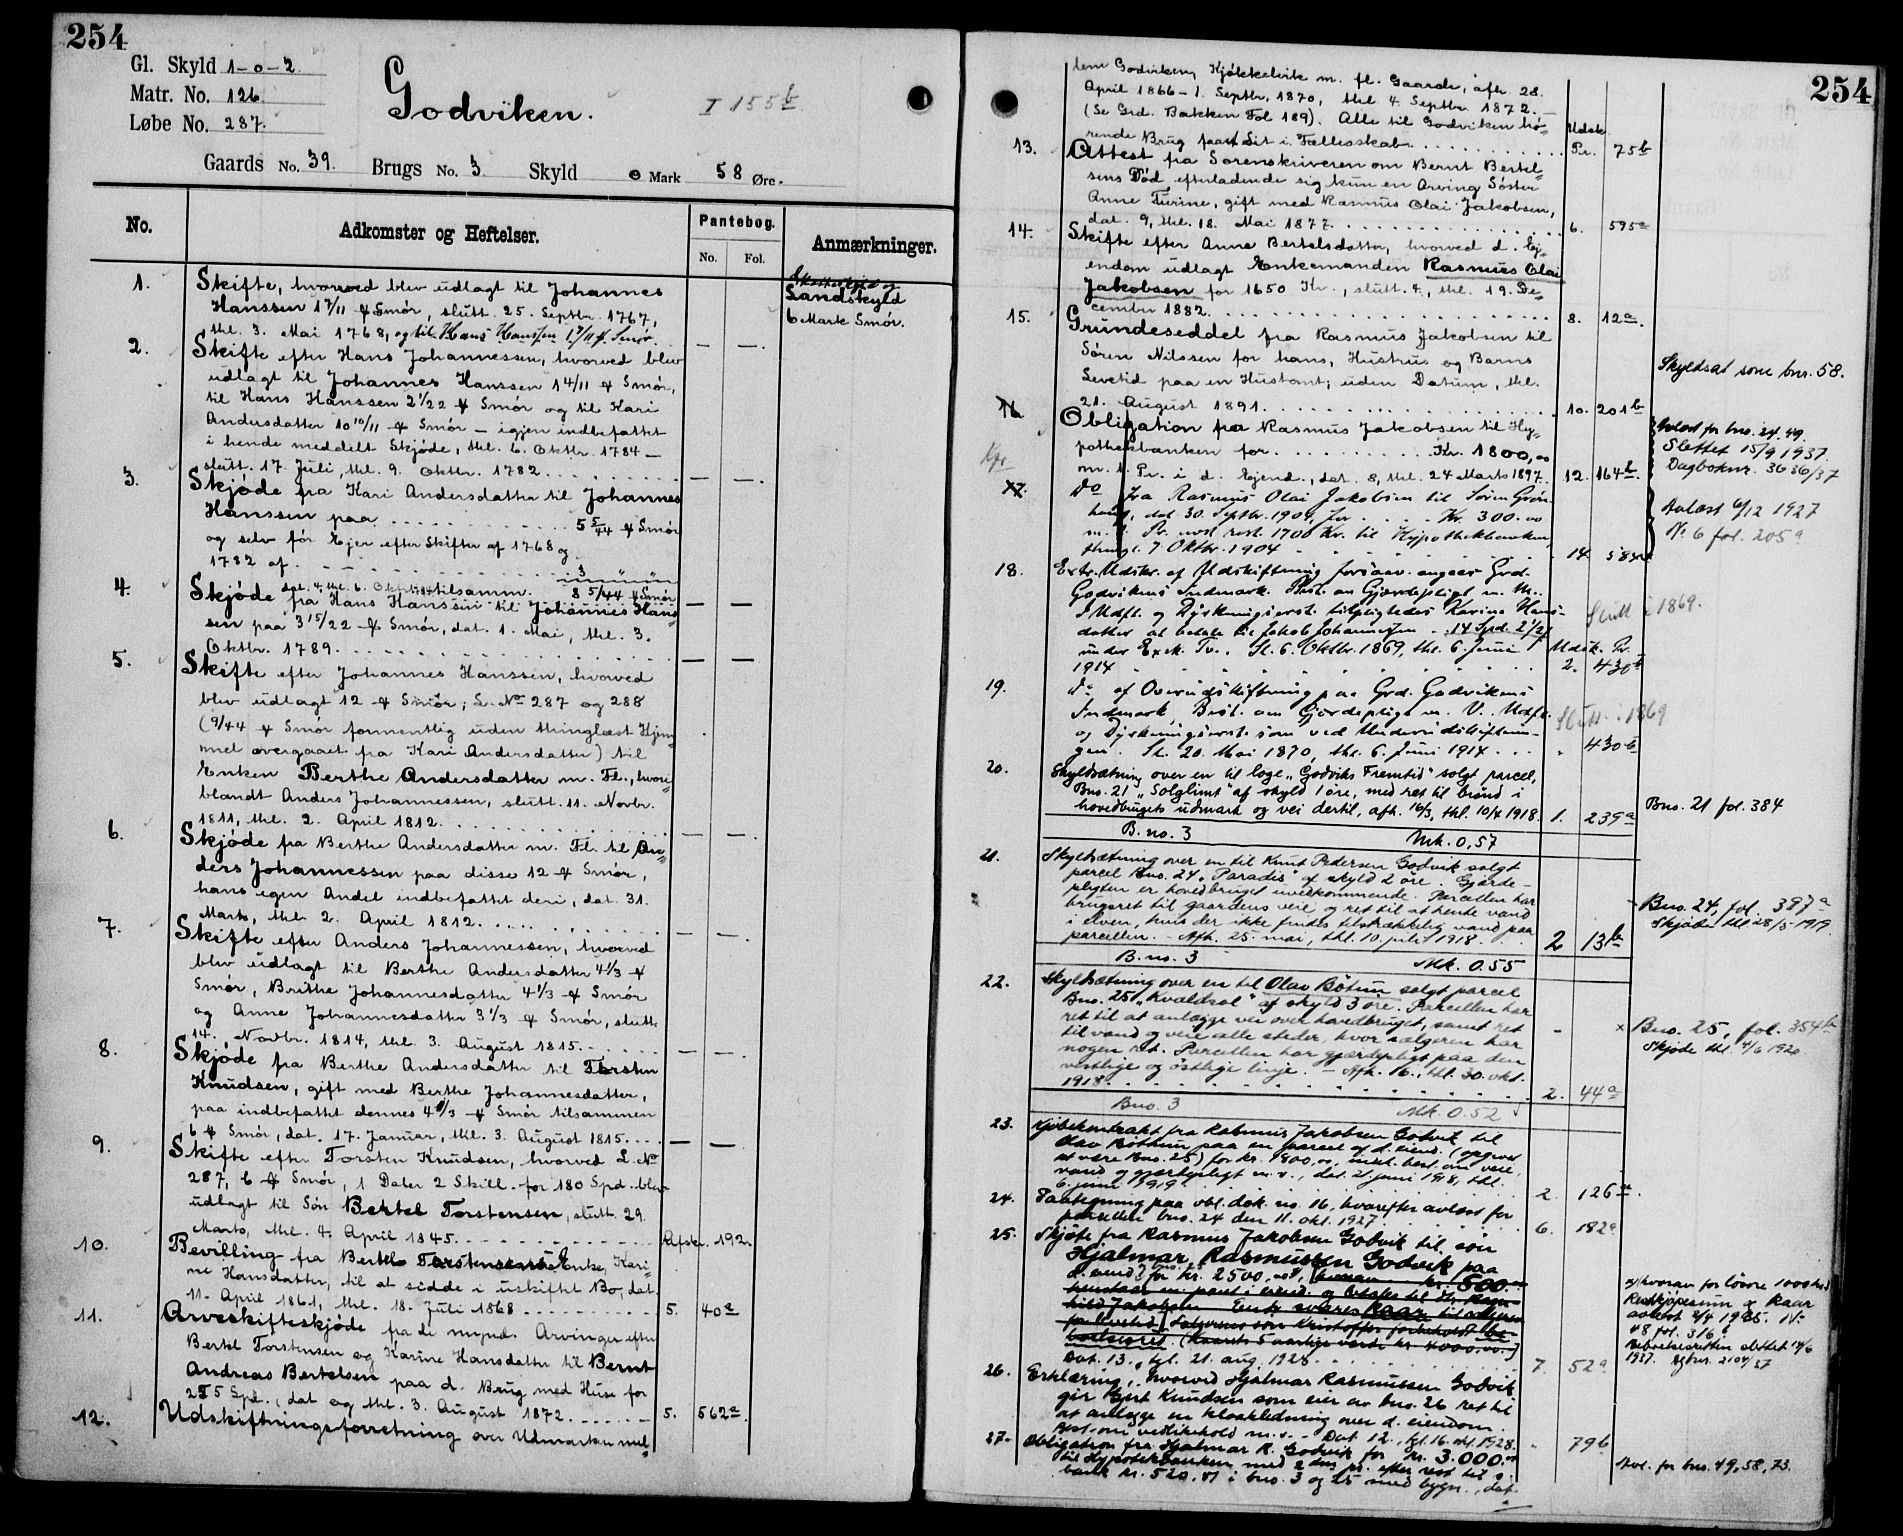 254
Gl. Skyld 1-0-2
Matr. No. 126
Løbe No. 287.
Godviken.
I 155b
Gaards No. 39. Brugs No. 3 Skyld 0 Mark 58 Øre.
No.
Adkomster og Heftelser.
Pantebog.
No. Fol.
Anmærkninger.
1. Skifte, hvorved blev udlagt til Johannes
Hanssen 1 7/11 ℔ Smør, slutt. 25. Septbr. 1767,
thl. 3. Mai 1768, og til Hans Hanssen 1 7/11 ℔ Smør. — —.
Landskyld
6 Mark Smør.
2. Skifte efter Hans Johannessen, hvorved blev
udlagt til Johannes Hanssen 14/11 ℔ Smør,
til Hans Hanssen 2 1/22 ℔ Smør og til Kari
Andersdatter 10 10/11 ℔ Smør — igjen indbefattet
i hende meddelt Skjøde, thl. 6. Oktbr. 1784 —
slutt. 17. Juli, thl. 9. Oktbr. 1782 . . . . . — —.
3. Skjøde fra Kari Andersdatter til Johannes
Hanssen paa . . . . . 5 5/44 ℔ Smør
og selv før Ejer efter Skifter af 1768 og
1782 af . . . . . 3 " "
dat. 4, thl. 6. Oktbr. 1784 tilsamm. 8 5/44 ℔ Smør — —
4. Skjøde fra Hans Hanssen til Johannes Hans-
sen paa 3 15/22 ℔ Smør, dat. 1. Mai, thl. 3.
Oktbr. 1789. . . . . . — —
5. Skifte efter Johannes Hanssen, hvorved
blev udlagt 12 ℔ Smør; L. No 287 og 288
(9/44 ℔ Smør formentlig uden thinglæst Hjem-
mel overgaaet fra Kari Andersdatter) til
Enken Berthe Andersdatter m. Fl., hvori-
blandt Anders Johannessen, slutt. 11. Novbr.
1811, thl. 2. April 1812. . . . . . — —.
6. Skjøde fra Berthe Andersdatter m. Fl. til An-
ders Johannessen paa disse 12 ℔ Smør,
hans egen Andel indbefattet deri, dat. 31.
Marts, thl. 2. April 1812. . . . . . — —
7. Skifte efter Anders Johannessen, hvorved
blev udlagt til Berthe Andersdatter 4 1/3 ℔
Smør, Brithe Johannesdatter 4 1/3 ℔ Smør
og Anne Johannesdatter 3 1/3 ℔ Smør, slutt.
14. Novbr. 1814, thl. 3. August 1815. . . . . — —
8. Skjøde fra Berthe Andersdatter til Torsten
Knudsen, gift med Berthe Johannesdatter,
paa indbefattet dennes 4 1/3 ℔ Smør tilsammen
6 ℔ Smør, dat. 17. Januar, thl. 3. August 1815. . . . — —
9. Skifte efter Torsten Knudsen, hvorved L. No
287, 6 ℔ Smør, 1 Daler 2 Skill. for 180 Spd. blev
udlagt til Søn Bertel Torstensen, slutt. 29.
Marts, thl. 4. April 1845. . . . . . Afskr. 192.
10. Bevilling fra Bertel Torstensens Enke, Kari-
ne Hansdatter, til at sidde i uskiftet Bo, dat.
11. April 1861, thl. 18. Juli 1868 . . . . . 5. 40a
11. Arveskifteskjøde fra de mynd. Arvinger efter
Bertel Torstensen og Karine Hansdatter til Bernt
Andreas Bertelsen paa d. Brug med Huse for
255 Spd., dat. og thl. 3. August 1872. . . . . 5. 562a.
12. Udskiftningsforretning over Udmarken mel-
254
lem Godviken, Kjøkkelvik m. fl. Gaarde, afh. 28.
April 1866 – 1. Septbr. 1870, thl. 4. Septbr. 1872. —
(Se Grd. Bakken Fol 189). Alle til Godviken hø-
rende Brug faar Sit i Fællesskab. . . . . . Udsk. Pr. 75b
13. Attest fra Sorenskriveren om Bernt Bertel-
sens Død efterladende sig kun en Arving Søster
Anne Turine, gift med Rasmus Olai Jakobsen,
dat. 9, thl. 18. Mai 1877. . . . . . 6. 595a
14. Skifte efter Anne Bertelsdatter, hvorved d. Ej-
endom udlagt Enkemanden Rasmus Olai
Jakobsen for 1650 Kr., slutt. 4, thl. 19. De-
cember 1882. . . . . . 8. 12a.
15. Grundeseddel fra Rasmus Jakobsen til
Søren Nilssen for hans, Hustrus og Barns
Levetid paa en Hustomt; uden Datum, thl.
21. August 1891. . . . . . 10. 201b
Skyldsat som bnr. 58.
16. Obligation fra Rasmus Jakobsen til Hy-
pothekbanken for . . . . . Kr. 1800,00
m. 1. Pr. i d. Ejend., dat. 8, thl. 24 Marts 1897. 12. 164b.
Avlest for bno. 24. 49.
Slettet 15/9 1937.
Dagboknr. 3636/37
Kfr.
17. Do fra Rasmus Olai Jakobsen til Søren Grøn-
haug, dat. 30. Septbr. 1904, for . . . . Kr. 300.00
m. . Pr. næst rest. 1700 Kr. til Hypothekbanken
thingl. 7. Oktbr. 1904 . . . . . 14. 584a
Avlæst 6/12 1927
No 6 fol. 205a
18. Extr. Udskr. af Udskiftning forsaav. angaar Grd.
Godvikens Indmark. Best. om Gjærdepligt m. M..
I Udft. og Dyrkningserst. tilpligtedes Karine Hans-
datter at betale til Jakob Johannessen . . 14 Spd. 2 1/2
under Exek. Tv.. Sl. 6. Oktbr. 1869, thl. 6. Juni
1914 . . . . . Udsk. Pr. 2. 430b
Slutt i 1869.
19. Do af Overudskiftning paa Grd. Godvikens
Indmark, Best. om Gjærdepligt m. V. Udft.
og Dyrkningserst. som ved Underudskiftnin-
gen. Sl. 20. Mai 1870, thl. 6. Juni 1914 . . . " 430b
Slutt. i 1869
20. Skyldsætning over en til loge „Godviks Fremtid" solgt parcel,
Bno. 21 „Solglimt" af skyld 1 øre, med ret til brønd i
hovedbrugets udmark og vei dertil, afh. 16/3, thl. 10/4 1918. 1. 239a
Bno. 21 fol. 384
B. no. 3 Mk. 0,57
21. Skyldsætning over en til Knut Pedersen Godvik solgt
parcel Bno. 24 „Paradis" af skyld 2 øre. Gjerde-
pligten er hovedbruget uvedkommende. Parcellen har
brugsret til gaardens veie og ret til at hente vand
i elven, hvis der ikke findes tilstrækkelig vand paa
parcellen. – Afh. 25. mai, thl. 10. juli 1918. . . . 2 13b
Bno. 24, fol. 397a
Skjøde thl 28/5 1919.
B. no. 3 Mk. 0.55
22. Skyldsætning over en til Olav Bøtun solgt parcel
Bno. 25 „Kvældsol" af skyld 3 øre. Parcellen har
ret til at anlægge vei over hovedbruget, samt ret
til vand og veie alle steder, hvor sælgeren har
nogen ret. Parcellen har gjærdepligt paa den
vestlige og østlige linje. – Afh. 16., thl. 30. okt.
1918. . . . . . 2. 44a
× Bno. 25, fol. 354b
Skjøde thl. 4/6 1920
Bno. 3 Mk. 0.52
23. Kjøbekontrakt fra Rasmus Jakobsen Godvik til
Olav Bøthun paa en parcel af d. eiend. (opgivet
at være Bno. 25) for kr. 1800,00, inkl. best. om veie,
vand og gjærdepligt m. v., dat. 21. juni 1918, thl.
6. juni 1919. . . . . . 2. 126a.
24. Paategning paa obl. dok. no. 16, hvorefter avløst for
parcellen bno. 24 den 11. okt. 1927. . . . . . 6. 182a
25. Skjøte fra Rasmus Jakobsen Godvik til søn
Hjalmar Rasmussen Godvik paa
d. eiend. for kr. 2500,00, hvorav kr. 500.00
Kaar
(Kaarets 5 aarlige verdi kr. 4000.00.)
Dat. 13., tgl. 21. aug. 1928. . . . . . 7. 52a
hvorav for løsøre 1000 kr.
Restkjøpesum & Kaar
avlest 2/4 1935. No
48 fol. 316a
1937. Dgbnr. 2104/37
26. Erklæring, hvorved Hjalmar Rasmussen Godvik
gir Gjert Knudsen som eier av bno. 26 ret til
at anlegge en kloakledning over d. eiendom.
Best. om vedlikehold m. v. – Dat. 12., tgl. 16. okt. 1928. " 79b
27. Obligation fra Hjalmar R. Godvik for kr. 3.000.00
til Hypotekbanken med 2den pr. efter rest til s.
bank kr. 520.41 i bno. 3 og 25 med bygn., dat.
Avl. for bno. 49, 58, 73.